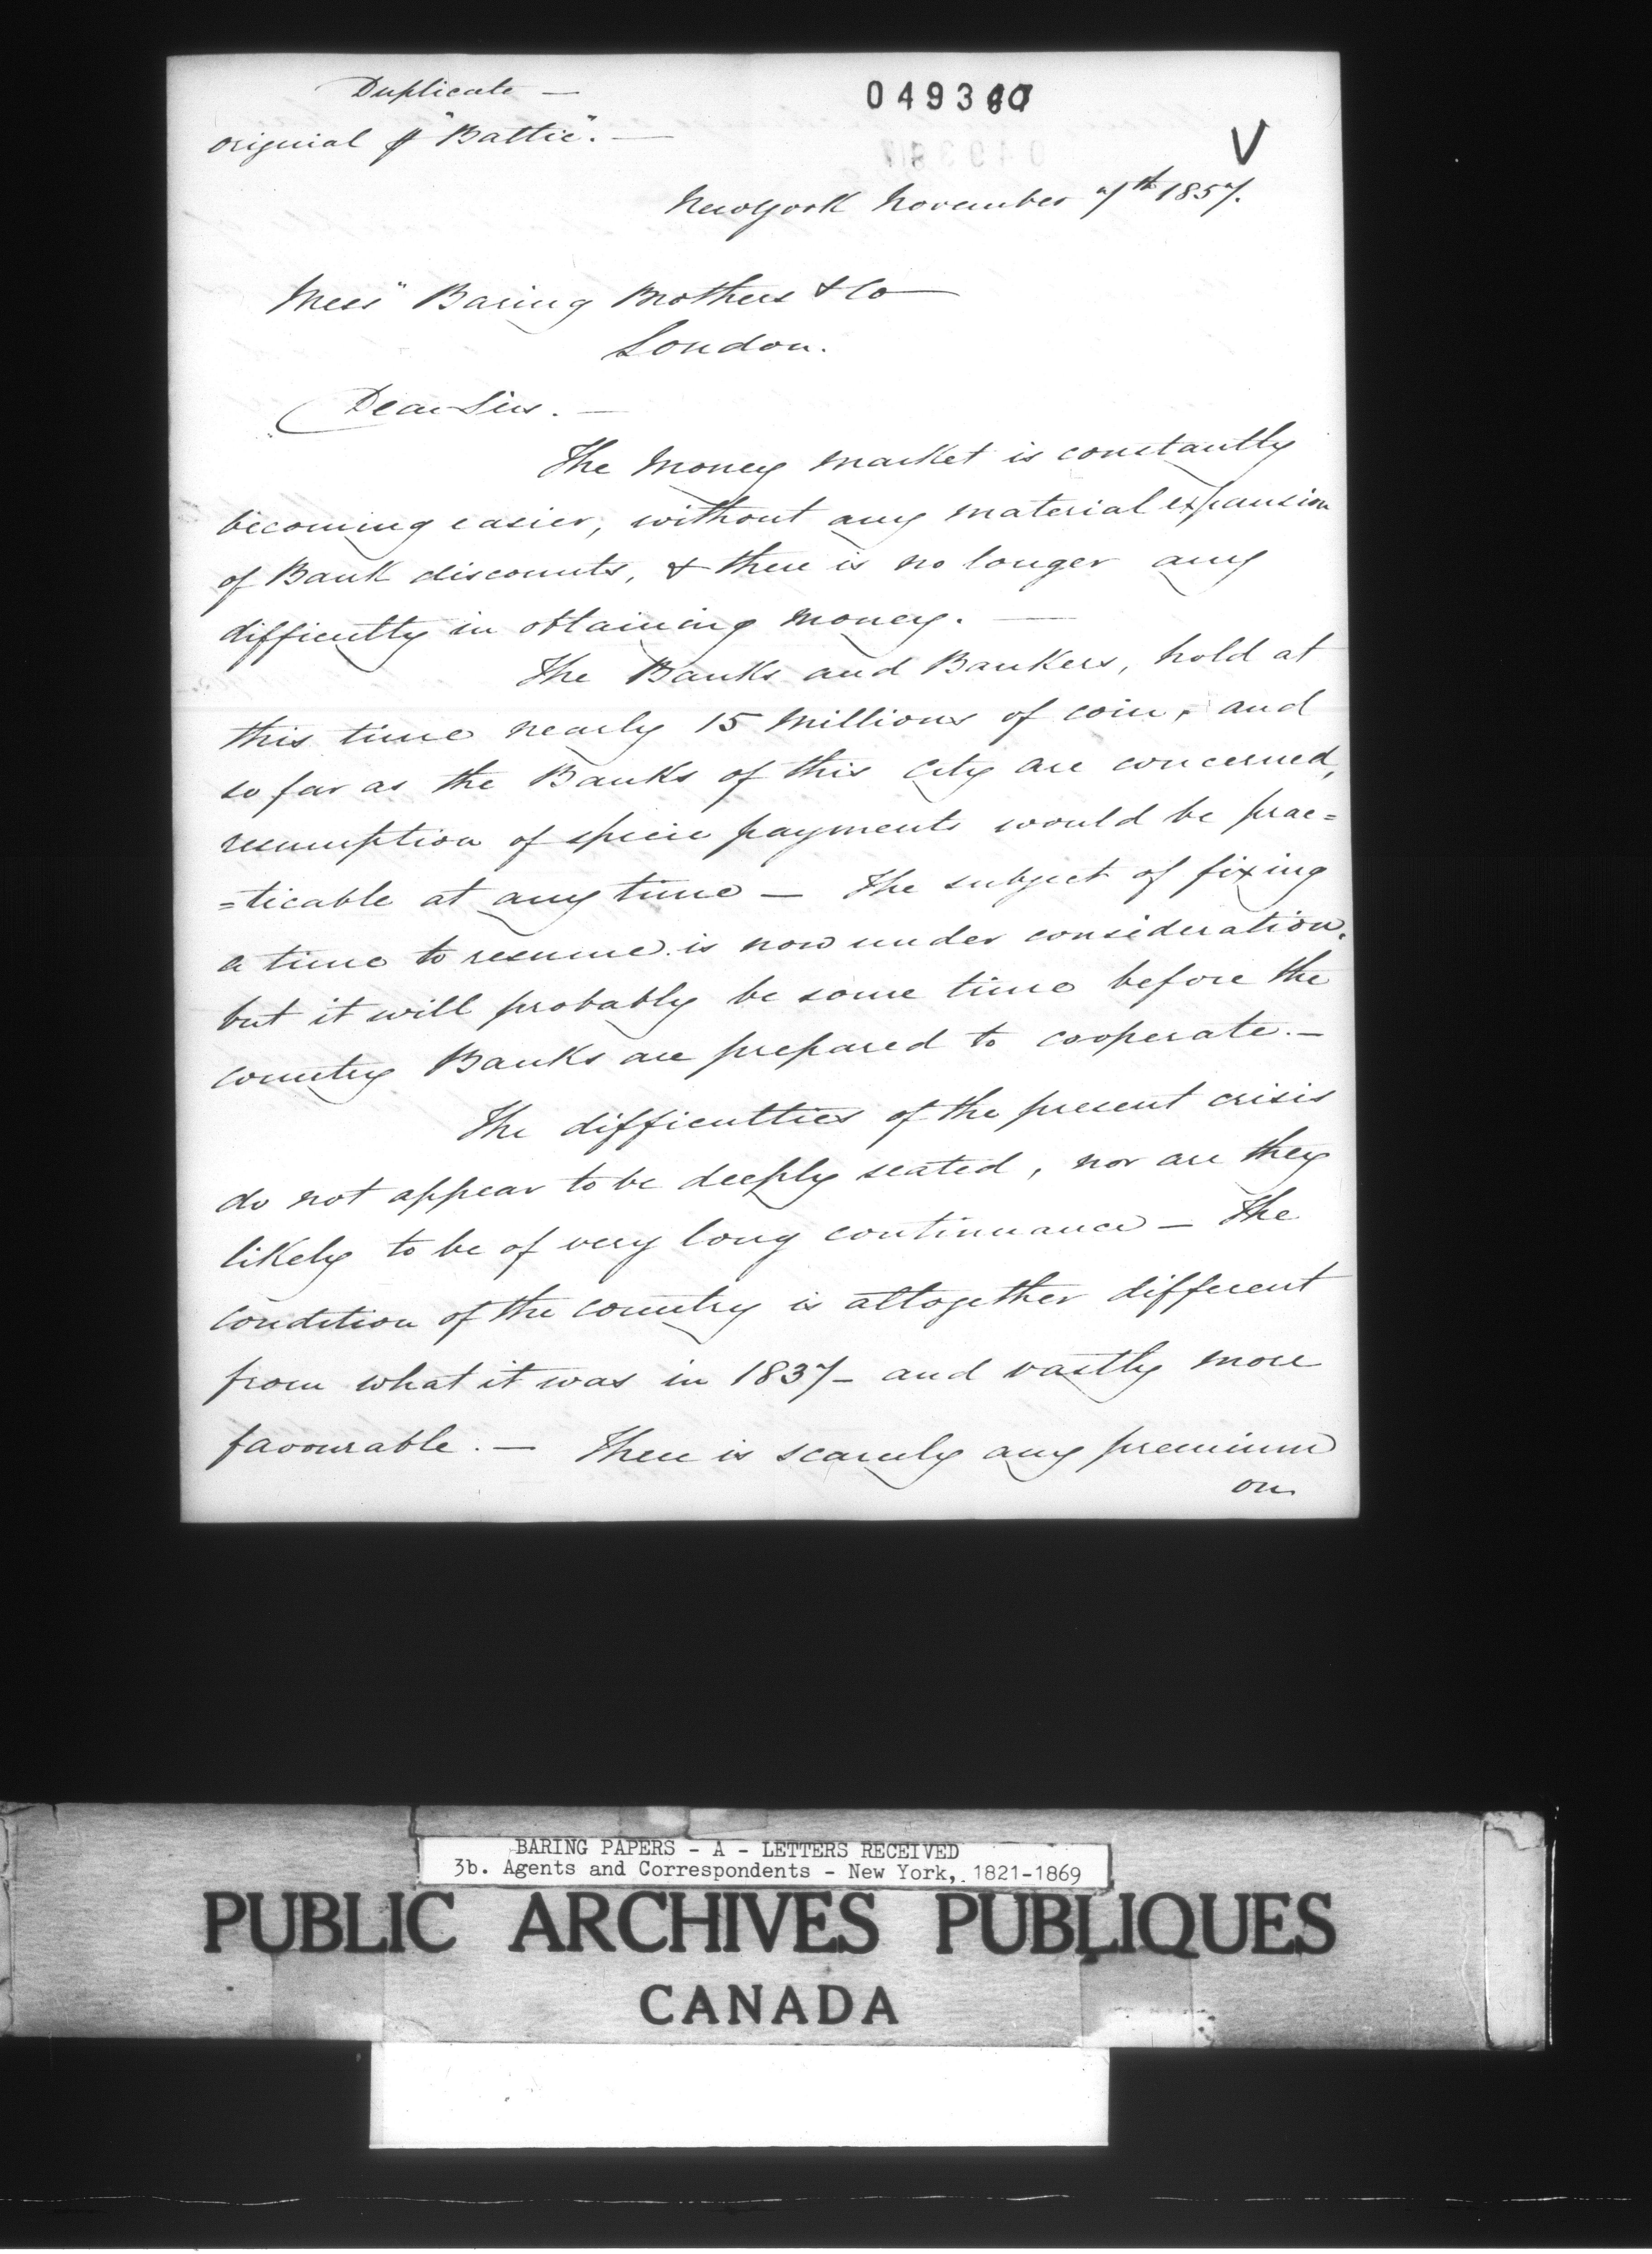 Duplicate —
original ⅌ "Baltic". —
V
New York November 7th 1857.
Mess" Baring Brothers & Co
London.
Dear Sirs. —
The money market is constantly
becoming easier, without any material expansion
of Bank discounts, & there is no longer any
difficulty in obtaining money. —
The Banks and Bankers, hold at
this time nearly 15 Millions of coin, and
so far as the Banks of this City are concerned,
resumption of specie payments would be prac=
=ticable at any time — The subject of fixing
a time to resume is now under consideration.
but it will probably be some time before the
country Banks are prepared to cooperate. —
The difficulties of the present crisis
do not appear to be deeply seated, nor are they
likely to be of very long continuance — The
condition of the country is altogether different
from what it was in 1837 — and vastly more
favourable. — There is scarcely any premium
on
BARING PAPERS - A - LETTERS RECEIVED
3b. Agents and Correspondents - New York, 1821-1869
PUBLIC ARCHIVES PUBLIQUES
CANADA